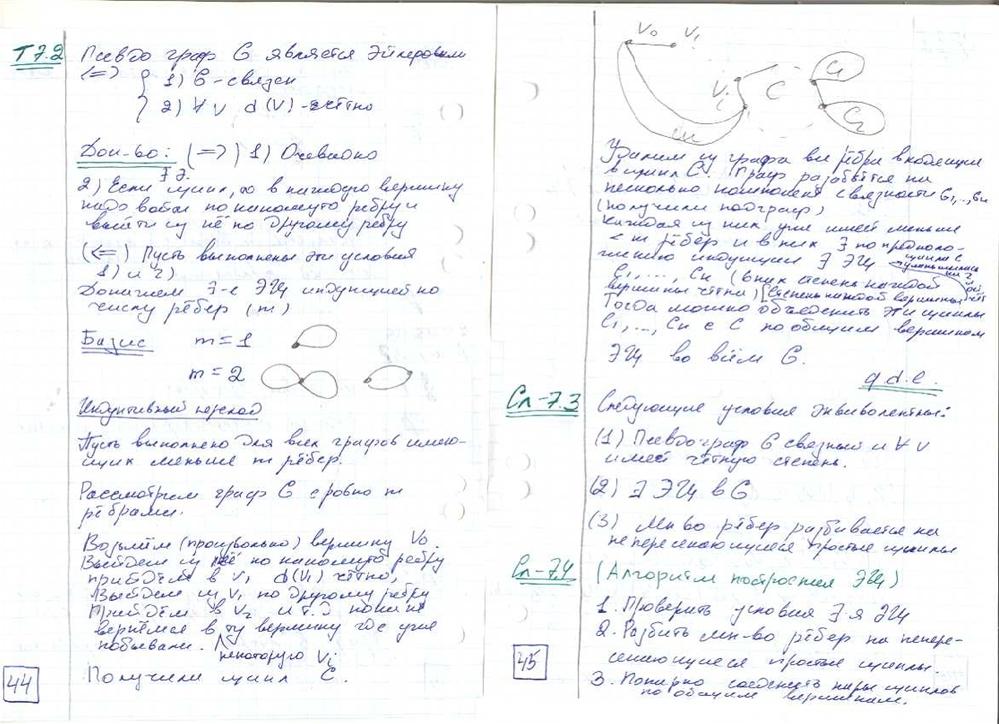 Т 7.2 Псевдо граф G является Эйлеровым
(=) { 1) G - связен
2) ∀ V d(V) - чётно
Док-во: (=>) 1) Очевидно
2) Если ∃ Э. цикл, то в каждую вершину
надо войти по какому-то ребру и
выйти из неё по другому ребру
(<=) Пусть выполнены эти условия
1) и 2)
Докажем ∃-е ЭЦ индукцией по
числу рёбер (m)
Базис m = 1
m = 2
Индуктивный переход
Пусть выполнено для всех графов имею-
щих меньше m рёбер.
Рассмотрим граф G с ровно m
рёбрами.
Возьмём (произвольно) вершину V0.
Выйдем из неё по какому-то ребру
прийдём в V1 d(V1) чётно,
Выйдем из V1 по другому ребру
Прийдём в V2 и т.д пока не
вернёмся в ту вершину где уже
побывали. некоторую Vi
Получили цикл C.
44
V0 V1
Vi C C1
C2
Удалим из графа все рёбра входящие
в цикл C. Граф разобьётся на
несколько компонент связности G1,..,Gk
(получили подграф)
каждая из них уже имеет меньше
< m рёбер и в них ∃ по предполо-
жению индукции ∃ ЭЦ
C1,..., Cn (в них степень каждой
вершины чётна) [Степень каждой вершины
Тогда можно объеденить эти циклы
C1,..., Cn с C по общим вершинам
ЭЦ во всём G.
q.d.e.
Сл-7.3 Следующие условия эквиволентны:
(1) Псевдограф G связный и ∀ V
имеет чётную степень.
(2) ∃ ЭЦ в G
(3) Мн-во рёбер разбивается на
непересекающиеся простые циклы
Сл-7.4 (Алгоритм построения ЭЦ)
1. Проверить условия ∃-я ЭЦ
2. Разбить мн-во рёбер на непере-
секающиеся простые циклы.
3. Попарно соеденить пары циклов
по общим вершинам.
45